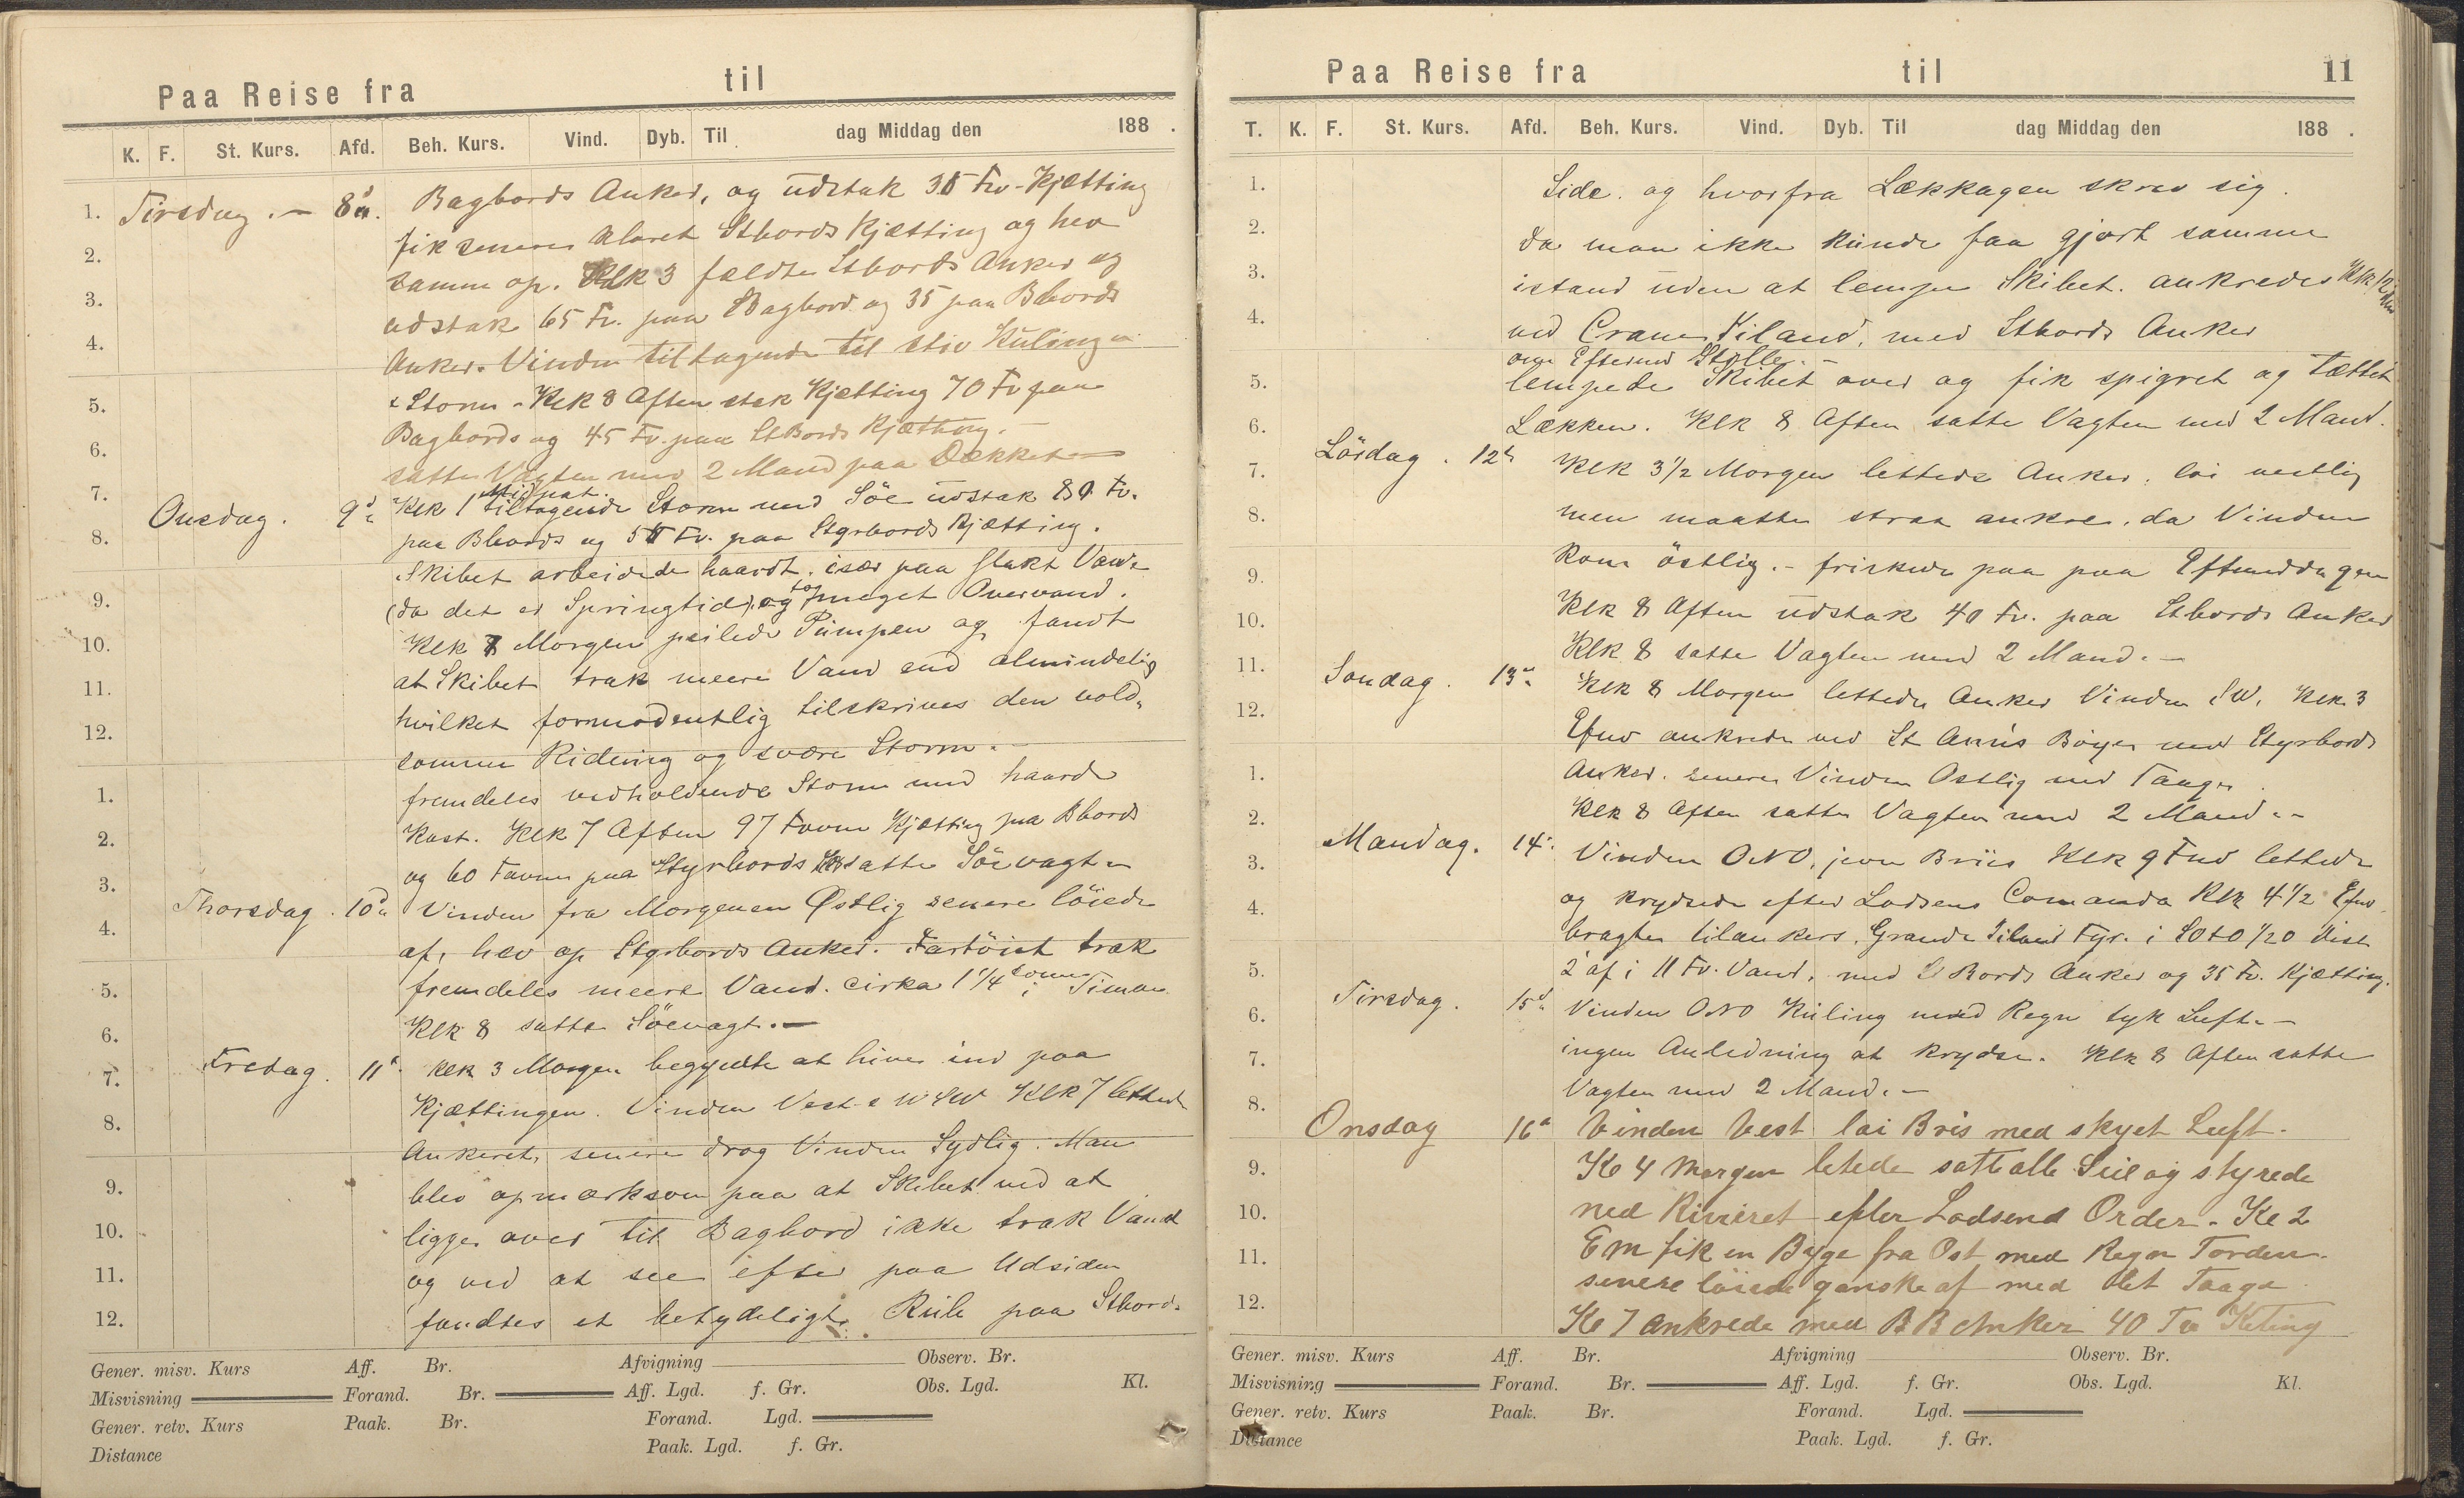 Paa Reise fra til
K. F. St. Kurs. Afd. Beh. Kurs. Vind. Dyb. Til dag Middag den 188 .
1. Tirsdag. – 8d. Bagbords Anker, og udstak 35 Fv. Kjætting
fik senere klaret Stbords Kjætting og hev
2.
samme op. Klk 3 fældte Stbords Anker og
3.
udstak 65 Fv. paa Bagbord og 35 paa Bbords
4.
Anker. Vinden tiltagende til stiv Kuling
& Storm - Klk 8 Aften stak Kjætting 70 Fv paa
5.
Bagbords og 45 Fv. paa StBords Kjætting. –
6.
satte Vagten med 2 Mand paa Dækket
7.
Midnat.
Onsdag. 9d Klk 1 tiltagende Storm med Söe udstak 80 Fv.
8.
paa Bbords og 50 Fv. paa Styrbords Kjætting.
Skibet arbeidede haardt, især paa flakt Vand
9.
(da det er Springtid) og tog meget Overvand.
10.
Klk 8 Morgen peilede Pumpen og fandt
at Skibet trak meere Vand end almindelig
11.
hvilket formodentlig tilskrives den vold-
12.
somme Ridning og svære Storm. –
fremdeles vedholdende Storm med haarde
1.
Kast. Klk 7 Aften 97 Favne Kjætting paa Bbords
2.
og 60 Favne paa Styrbords satte Söevagten
3.
Thorsdag. 10d Vinden fra Morgenen Østlig senere löiede
4.
af, hev op Styrbords Anker. Fartöiet trak
5.
fremdeles meere Vand. cirka 1 1/4 tomme i Timen
6.
Klk 8 satte Söevagt. –
7. Fredag. 11d Klk 3 Morgen begyndte at hive ind paa
Kjættingen. Vinden Vest & WSW Klk 7 lettede
8.
Ankeret, senere drog Vinden Sydlig. Man
9.
blev opmærksom paa at Skibet ved at
10.
ligge over til Bagbord ikke trak Vand
11.
og ved at see efter paa Udsiden
12.
fandtes et betydeligt paa Stbords
Gener. misv. Kurs Aff. Br. Afvigning Observ. Br.
Misvisning Forand. Br. Aff. Lgd. f. Gr. Obs. Lgd. Kl.
Gener. retv. Kurs Paak. Br. Forand. Lgd.
Distance Paak. Lgd. f. Gr.
Paa Reise fra til 11
T. K. F. St. Kurs. Afd. Beh. Kurs. Vind. Dyb. Til dag Middag den 188 .
1. Side. og hvorfra Lækkagen skrev sig.
2. da man ikke kunde faa gjort samme
3. istand uden at lempe Skibet. ankredes Klk 12
4. ved Crane Iland, med Stbords Anker
om Eftermd Stille. –
5. lempede Skibet over og fik spigret og tættet
6. Lækken. Klk 8 Aften satte Vagten med 2 Mand.
Lördag. 12d Klk 3 1/2 Morgen lettede Anker, löi vestlig
7.
8. men maatte strax ankre, da Vinden
9. kom östlig. – friskede paa paa Eftermiddagen
10. Klk 8 Aften udstak 40 Fv. paa Stbords Anker
11. Klk 8 satte Vagten med 2 Mand. –
Sondag. 13d Klk 8 Morgen lettede Anker Vinden SW. Klk. 3
12.
Efmd ankrede ved St Anns Böye med Styrbords
1. Anker. senere Vinden Ostlig med Taage
2. Klk 8 Aften satte Vagten med 2 Mand. –
Mandag. 14d Vinden ONO, jevn Briis Klk 9 Fmd lettede
3.
4. og krydsede efter Lodsens Comando Klk 4 1/2 Efmd
bragte tilankers. Grande Iland Fyr. i SOtO 1/2 O Dist
5. 2' af i 11 Fv. Vand, med St Bords Anker og 35 Fv. Kjætting.
6. Tirsdag. 15d Vinden ONO Kuling med Regn tyk Luft. –
7. ingen Anledning at krydse. Klk 8 Aften satte
8. Vagten med 2 Mand. –
Onsdag 16d Vinden Vest lai Bris med skyet Luft.
9. Kl 4 Morgen letede satte alle Seil og styrede
10. ned Riviret efter Lodsens Order. Kl 2
11. Em fik en Byge fra Ost med Regn Torden.
12. senere löiede ganske af med tet Taage
Kl 7 ankrede med BB Anker 40 Fv Keting
Gener. misv. Kurs Aff. Br. Afvigning Observ. Br.
Misvisning Forand. Br. Aff. Lgd. f. Gr. Obs. Lgd. Kl.
Gener. retv. Kurs Paak. Br. Forand. Lgd.
Distance Paak. Lgd. f. Gr.